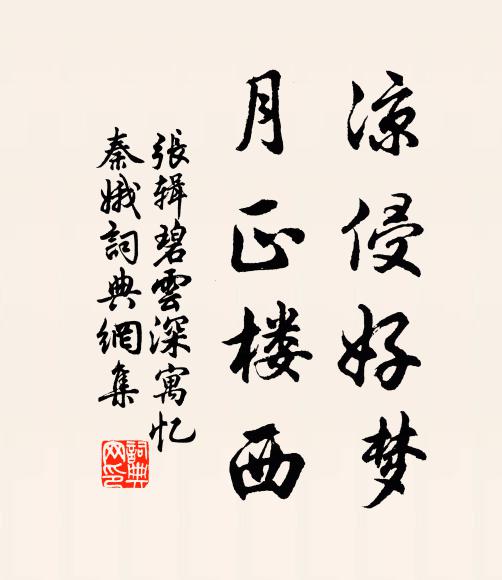 凉侵好梦
月正楼西
張辑碧雲深寓忆
秦娥詞典網集
詞典
网印